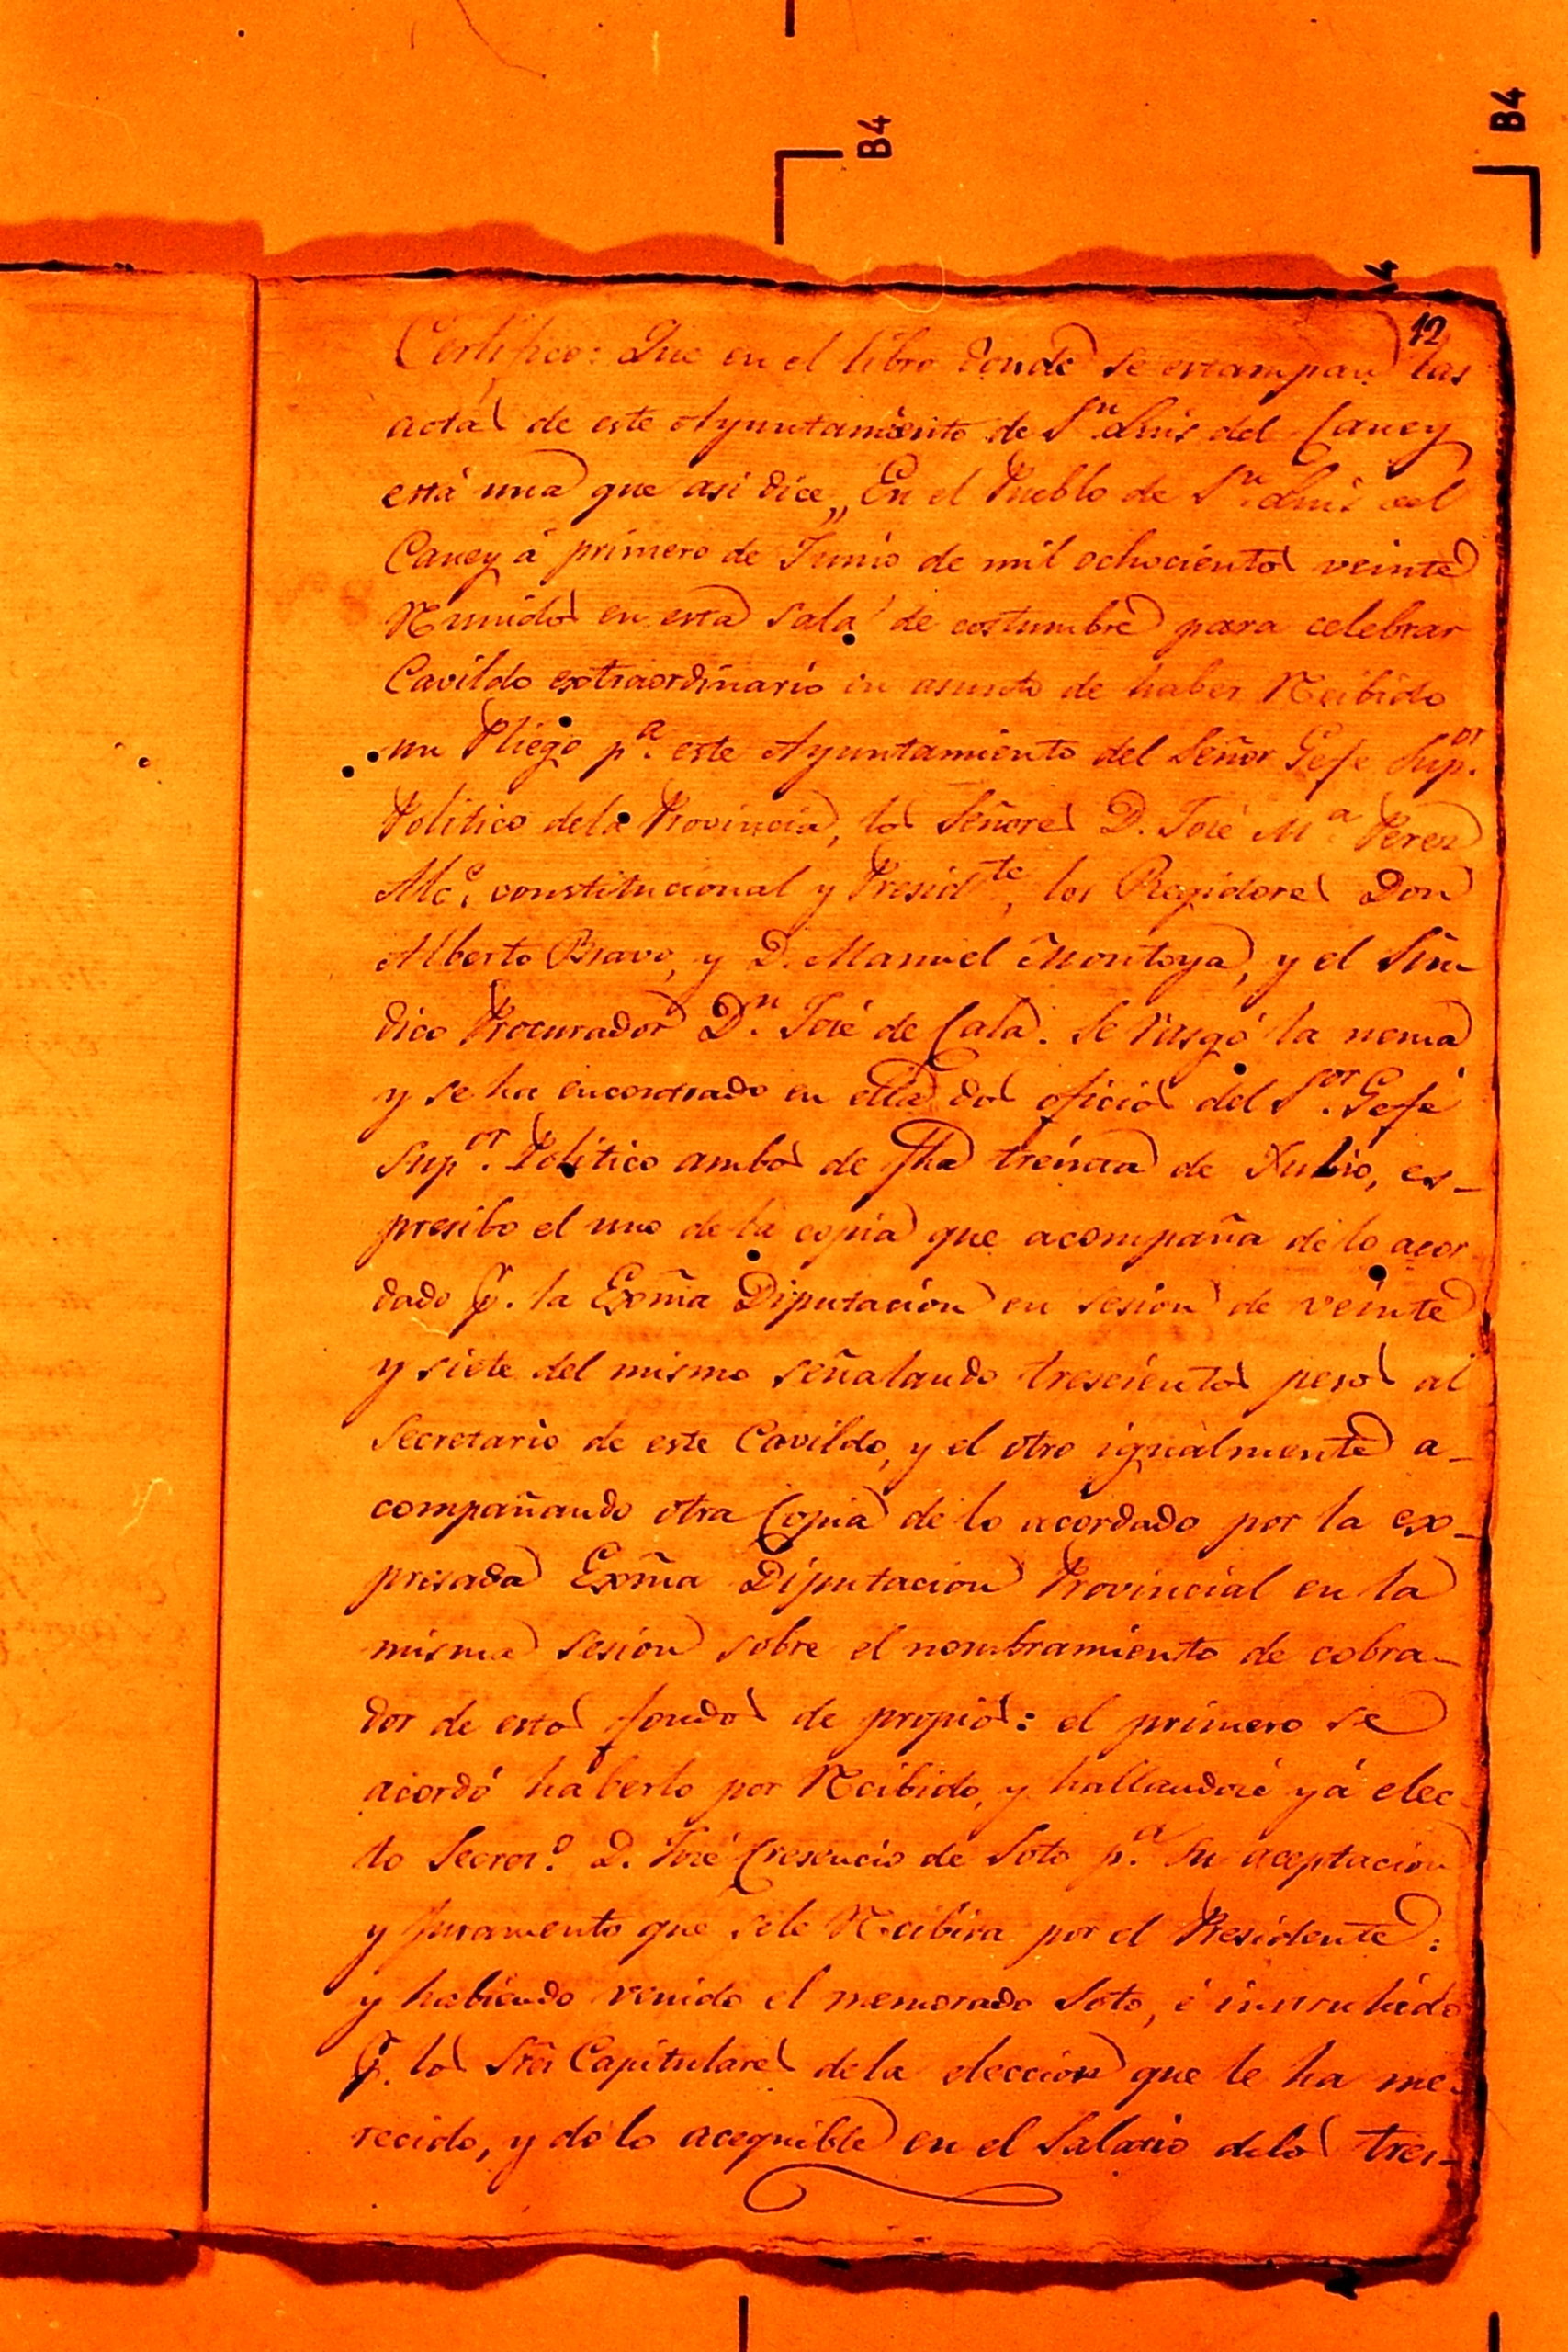 B4
B4
12
Certifico: Que en el libro donde se estampan las
actas de este Ayuntamiento de Sn. Luis del Caney
está una que asi dice,, En el Pueblo de Sn. Luis del
Caney á primero de Junio de mil ochocientos veinte
Reunidos en esta sala de costumbre para celebrar
Cavildo extraordinario en asunto de haber Recibido
un Pliego pa. este Ayuntamiento del Señor Gefe Supor.
Politico dela Provincia, los Señores D. José Ma. Perez
Alce. constitucional y Presidte, los Regidores Don
Alberto Bravo, y D. Manuel Montoya, y el Sin-
dico Procurador Dn. José de Cala. Se rasgó la nema
y se ha encontrado en ella dos oficios del Sor. Gefe
Supor. Politico ambos de fha treinta de Julio, es-
presibo el uno de la copia que acompaña de lo acor-
dado p. la Exma Diputacion en sesion de veinte
y siete del mismo señalando trescientos pesos al
Secretario de este Cavildo, y el otro igualmente a-
compañando otra Copia de lo acordado por la ex-
presada Exma Diputacion Provincial en la
misma sesion sobre el nombramiento de cobra-
dor de estos fondos de propios: el primero se
acordó haberlo por Recibido, y hallandose yá elec-
to Secreto. D. José Cresencio de Soto pa. su aceptacion
y juramento que sele Recibira por el Presidente:
y habiendo venido el memorado Soto, é instruhido
p. los Sres Capitulares dela eleccion que le ha me-
recido, y de lo acequible en el Salario delos tres-